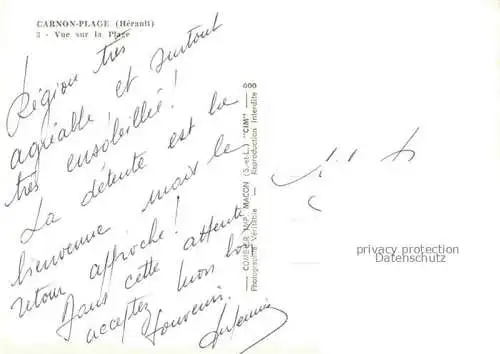 CARNON-PLAGE (Hérault)
3 - Vue sur la Plage
Région très
agréable et surtout
très ensoleillée!
La détente est la
bienvenue mais le
retour approche!
Dans cette attente
acceptez mon bon
souvenir.
COMBIER IMP. MACON (S.-et-L.) "CIM"
Photographie Véritable - Reproduction Interdite
privacy protection
Datenschutz